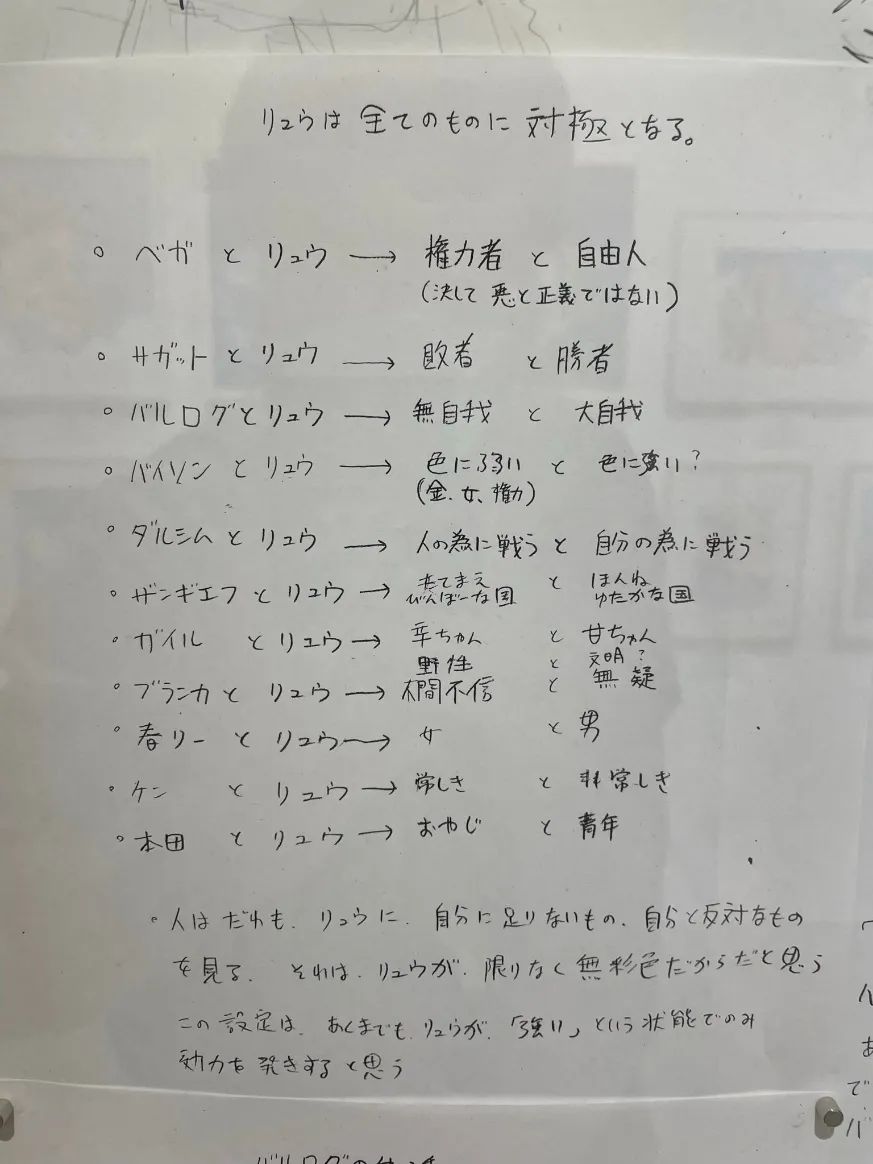 リュウは全てのものに対極となる。
。ベガとリュウ → 権力者と自由人
(決して悪と正義ではない)
。サガットとリュウ → 敗者と勝者
。バルログとリュウ → 無自我と大自我
。バイソンとリュウ → 色に弱いと色に強い?
(金、女、権力)
。ダルシムとリュウ → 人の為に戦うと自分の為に戦う
。ザンギエフとリュウ → たてまえ と ほんね
びんぼーな国 ゆたかな国
。ガイルとリュウ → 辛ちゃんと甘ちゃん
野性と文明?
。ブランカとリュウ → 人間不信と無疑
。春リーとリュウ → 女と男
。ケンとリュウ → 常しきと非常しき
。本田とリュウ → おやじと青年
。人はだれも、リュウに、自分に足りないもの、自分と反対なもの
を見る、それは、リュウが、限りなく無彩色だからだと思う
この設定は、あくまでも、リュウが、「強い」という状態でのみ
効力を発きすると思う